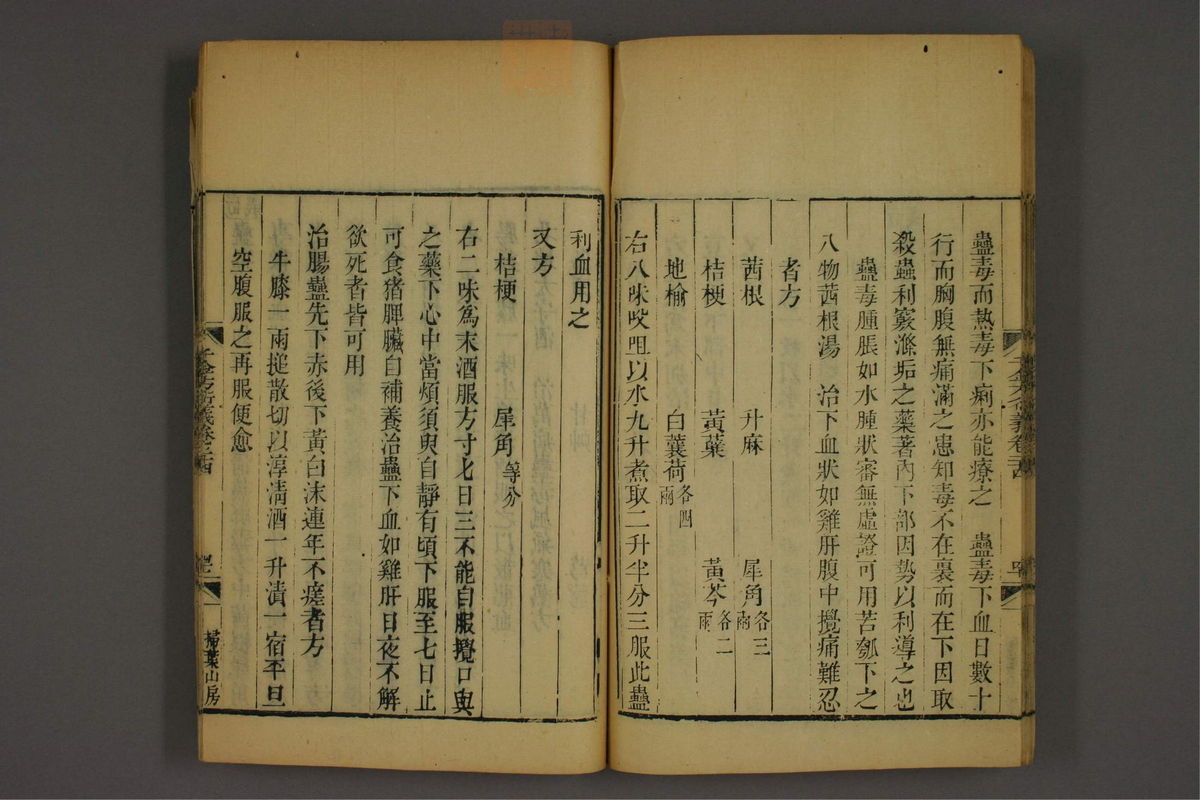 蠱毒而熱毒下痢亦能療之　蠱毒下血日數十
行而胸腹無痛滿之患知毒不在裏而在下因取
殺蟲利竅滌垢之藥著內下部因勢以利導之也
蠱毒腫脹如水腫狀審無虛證可用苦瓠下之
八物茜根湯　治下血狀如雞肝腹中攪痛難忍
者方
茜根　升麻　犀角各三兩
桔梗　黃蘗　黃芩各二兩
地榆　白蘘荷各四兩
右八味㕮咀以水九升煮取二升半分三服此蠱
利血用之
又方
桔梗　犀角等分
右二味為末酒服方寸匕日三不能自服攪口與
之藥下心中當煩須臾自靜有頃下服至七日止
可食猪脾臟自補養治蠱下血如雞肝日夜不解
欲死者皆可用
治腸蠱先下赤後下黃白沫連年不瘥者方
牛膝一兩搥散切以淳清酒一升漬一宿平旦
空腹服之再服便愈
千金方衍義卷二十四
掃葉山房